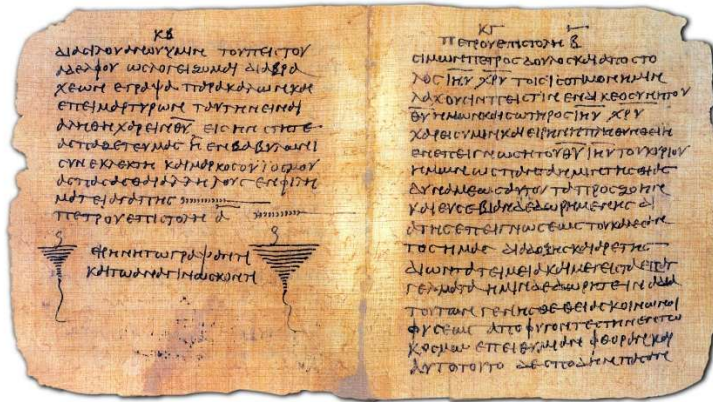 ΚΒ
ΔΙΑΣΙΛΟΥΑΝΟΥΥΜΙΝ ΤΟΥΠΕΙΣΤΟΥ
ΑΔΕΛΦΟΥ ΩΣΛΟΓΕΙΖΟΜΑΙ ΔΙΑΒΡΑ
ΧΕΩΝ ΕΓΡΑΨΑ ΠΑΡΑΚΑΛΩΝΚΑΙ
ΕΠΕΙΜΑΡΤΥΡΩΝ ΤΑΥΤΗΝΕΙΝΑΙ
ΑΛΗΘΗ ΧΑΡΕΙΝ ΘΥ ΕΙΣΗΝ ΣΤΗΤΕ
ΑΣΠΑΖΕΤΕΥΜΑΣ Η ΕΝΒΑΒΥΛΩΝΙ
ΣΥΝΕΚΛΕΚΤΗ ΚΑΙΜΑΡΚΟΣΟΥΙΟΣΜΟΥ
ΑΣΠΑΣΑΣΘΑΙΑΛΛΗΛΟΥΣ ΕΝΦΙΛΗ
ΜΑΤΕΙΑΓΑΠΗΣ
ΠΕΤΡΟΥΕΠΙΣΤΟΛΗ Α
ΕΙΡΗΝΗΤΩΓΡΑΨΑΝΤΙ
ΚΑΙΤΩΑΝΑΓΙΝΩΣΚΟΝΤΙ
ΚΓ
ΠΕΤΡΟΥΕΠΙΣΤΟΛΗ Β
ΣΙΜΩΝΠΕΤΡΟΣΔΟΥΛΟΣΚΑΙΑΠΟΣΤΟ
ΛΟΣΙΗΥ ΧΡΥ ΤΟΙΣΙΣΟΤΙΜΟΝΗΜΙΝ
ΛΑΧΟΥΣΙΝΠΕΙΣΤΙΝ ΕΝΔΙΚΕΟΣΥΝΗΤΟΥ
ΘΥΗΜΩΝΚΑΙΣΩΤΗΡΟΣΙΗΥ ΧΡΥ
ΧΑΡΕΙΣΥΜΙΝΚΑΙΕΙΡΗΝΗΠΛΗΘΥΝΘΕΙΗ
ΕΝΕΠΕΙΓΝΩΣΙΤΟΥΘΥ ΙΗΥ ΤΟΥΚΥΡΙΟΥ
ΗΜΩΝ ΩΣΠΑΝΤΑ ΗΜΙΝΤΗΣΘΕΙΑΣ
ΔΥΝΑΜΕΩΣΑΥΤΟΥ ΤΑΠΡΟΣΖΩΗΝ
ΚΑΙΕΥΣΕΒΙΑΝΔΕΔΩΡΗΜΕΝΗΣ ΔΙ
ΑΤΗΣΕΠΕΙΓΝΩΣΕΩΣΤΟΥΚΑΛΕΣΑΝ
ΤΟΣΗΜΑΣ ΔΙΑΔΟΞΗΣΚΑΙΑΡΕΤΗΣ
ΔΙΩΝΤΑΤΕΙΜΕΙΑΚΑΙΜΕΓΕΙΣΤΑΕΠΑΓ
ΓΕΛΜΑΤΑ ΗΜΙΝΔΕΔΩΡΗΤΕΙΝΑΔΙΑ
ΤΟΥΤΩΝ ΓΕΝΗΣΘΕΘΕΙΑΣΚΟΙΝΩΝΟΙ
ΦΥΣΕΩΣ ΑΠΟΦΥΓΟΝΤΕΣΤΗΝΕΝΤΩ
ΚΟΣΜΩ ΕΠΕΙΘΥΜΙΑΝ ΦΘΟΡΑΝ ΚΑΙ
ΑΥΤΟΤΟΥΤΟ ΔΕ ΣΠΟΥΔΗΝΠΑΣΑΝ